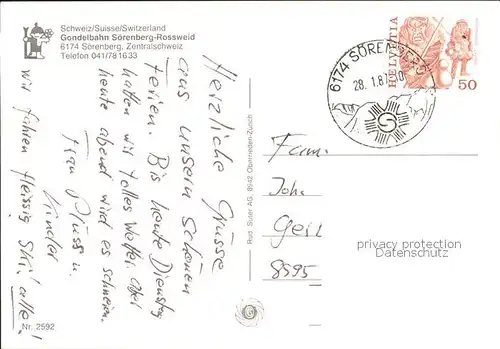 Schweiz/Suisse/Switzerland
Gondelbahn Sörenberg-Rossweid
6174 Sörenberg, Zentralschweiz
Telefon 041/78 16 33
Herzliche Grüsse
aus unsern schönen
ferien. Bis heute Dienstag
hatten wir tolles Wetter. aber
heute abend wird es schneien.
Frau Plüss u.
Kinder
wir fahren fleissig Ski! alle!
Nr. 2592
Rud. Suter AG, 8942 Oberrieden-Zürich
6174 SÖRENBERG
28.1.81
HELVETIA
50
Fam.
John
Geil
8595
privacy protection
Datenschutz